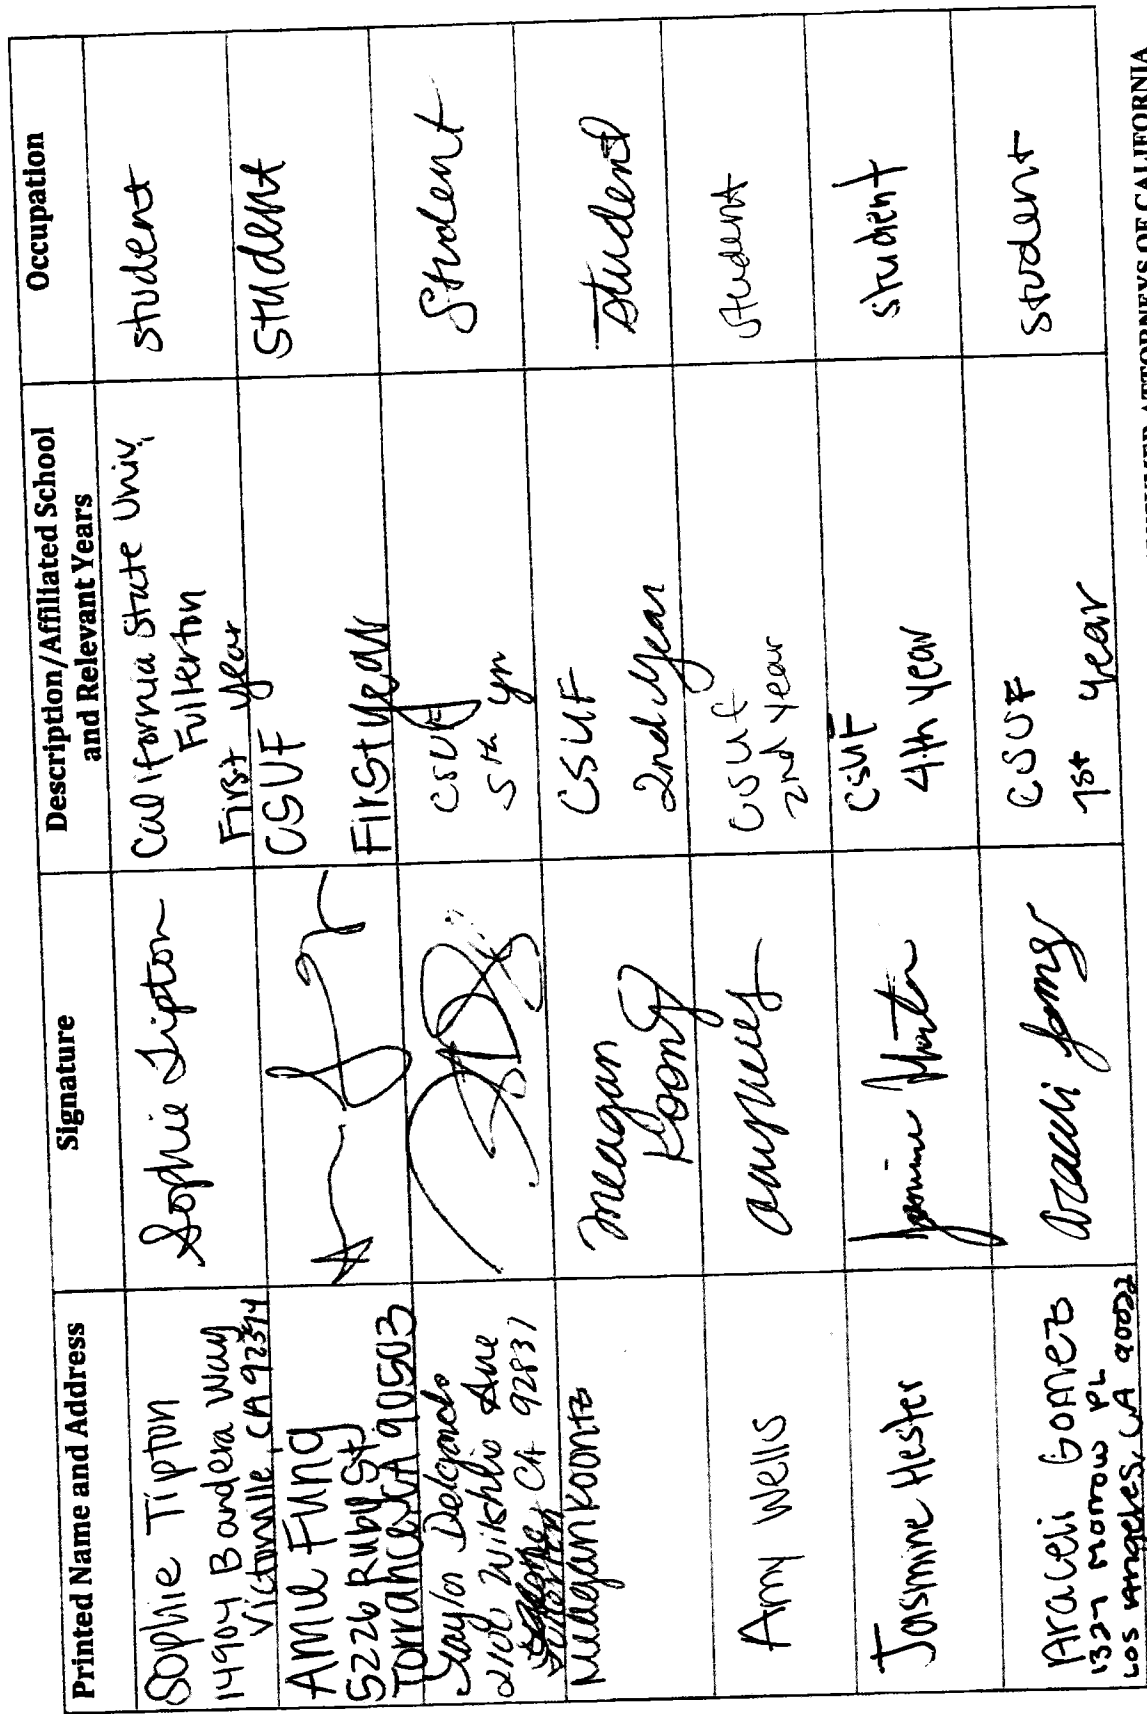 Printed Name and Address
Signature
Description/Affiliated School
and Relevant Years
Occupation
Sophie Tipton
14904 Bandera Way
Victorville, CA 92394
Sophie Tipton
California State Univ,
Fullerton
First year
student
Amie Fung
5226 Ruby St
Torrance CA 90503
CSUF
First year
student
Taylor Delgado
Wilshire Ave
Fullerton, CA 92831
CSUF
5th yr
Student
Meagan Koontz
Meagan
Koontz
CSUF
2nd year
student
Amy Wells
CSUF
2nd year
student
Jasmine Hester
Jasmine Hester
CSUF
4th year
student
Araceli Gomez
1327 Morrow PL
Los Angeles, CA 90022
Araceli Gomez
CSUF
1st year
student
ATTORNEYS OF CALIFORNIA